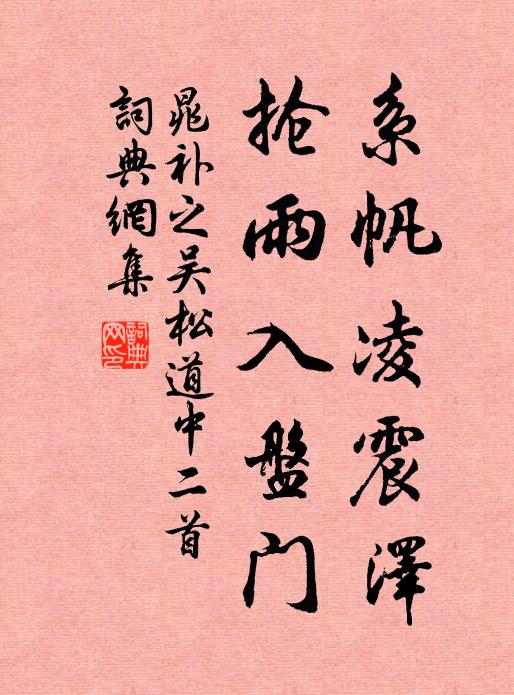 系帆凌震澤
抢雨入盤门
晁补之吴松道中二首
詞典網集
詞典网印